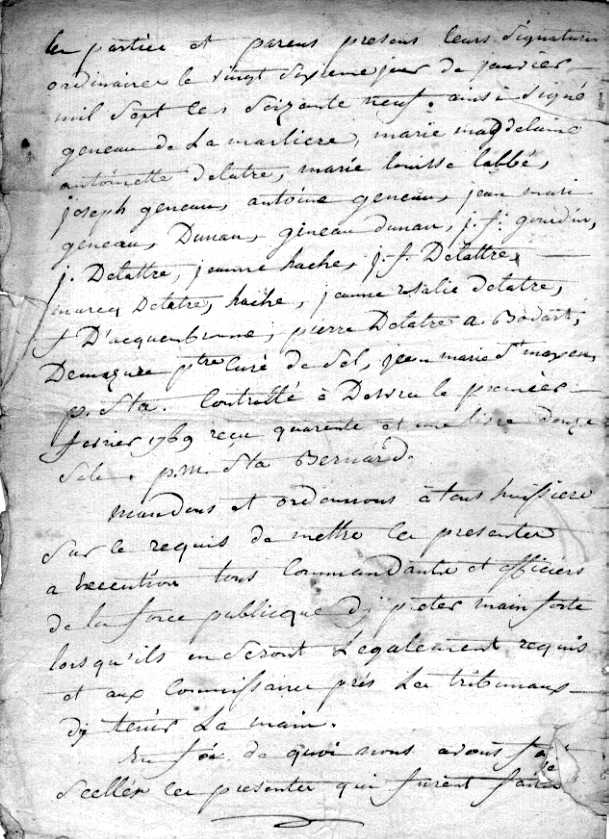 les parties et parens presens leurs signatures
ordinaires le vingt sixieme jour de janvier
mil sept cens soixante neuf. ainsi signé
geneau de La marliere, marie magdelaine
antoinette delatre, marie louisse labbé,
joseph geneau, antoine geneau, jean marie
geneau, Dunan, gineau dunan, j. f. gourdin,
j. Delattre, jeanne hache, j. f. Delattre,
marcq Delatre, hache, jeanne rosalie delatre,
f D'acquenbronne, pierre Delatre a. Bodart,
Demazure ptre Curé de Sel, jean marie St maxen,
p. Sta. Controllé à Desvre le premier
fevrier 1769 reçu quarente et une livre douze
Sols. p. m. Sta Bernard.
Mandons et ordonnons à tous huissiers
Sur ce requis de mettre les presentes
a Execution tous Commandants et officiers
de la force publicque d'y preter main forte
lorsqu'ils en Seront Legalement requis
et aux Commissaires près Les tribunaux
d'y tenir La main.
En foi de quoi nous avons fait
Sceller ces presentes qui furent faites